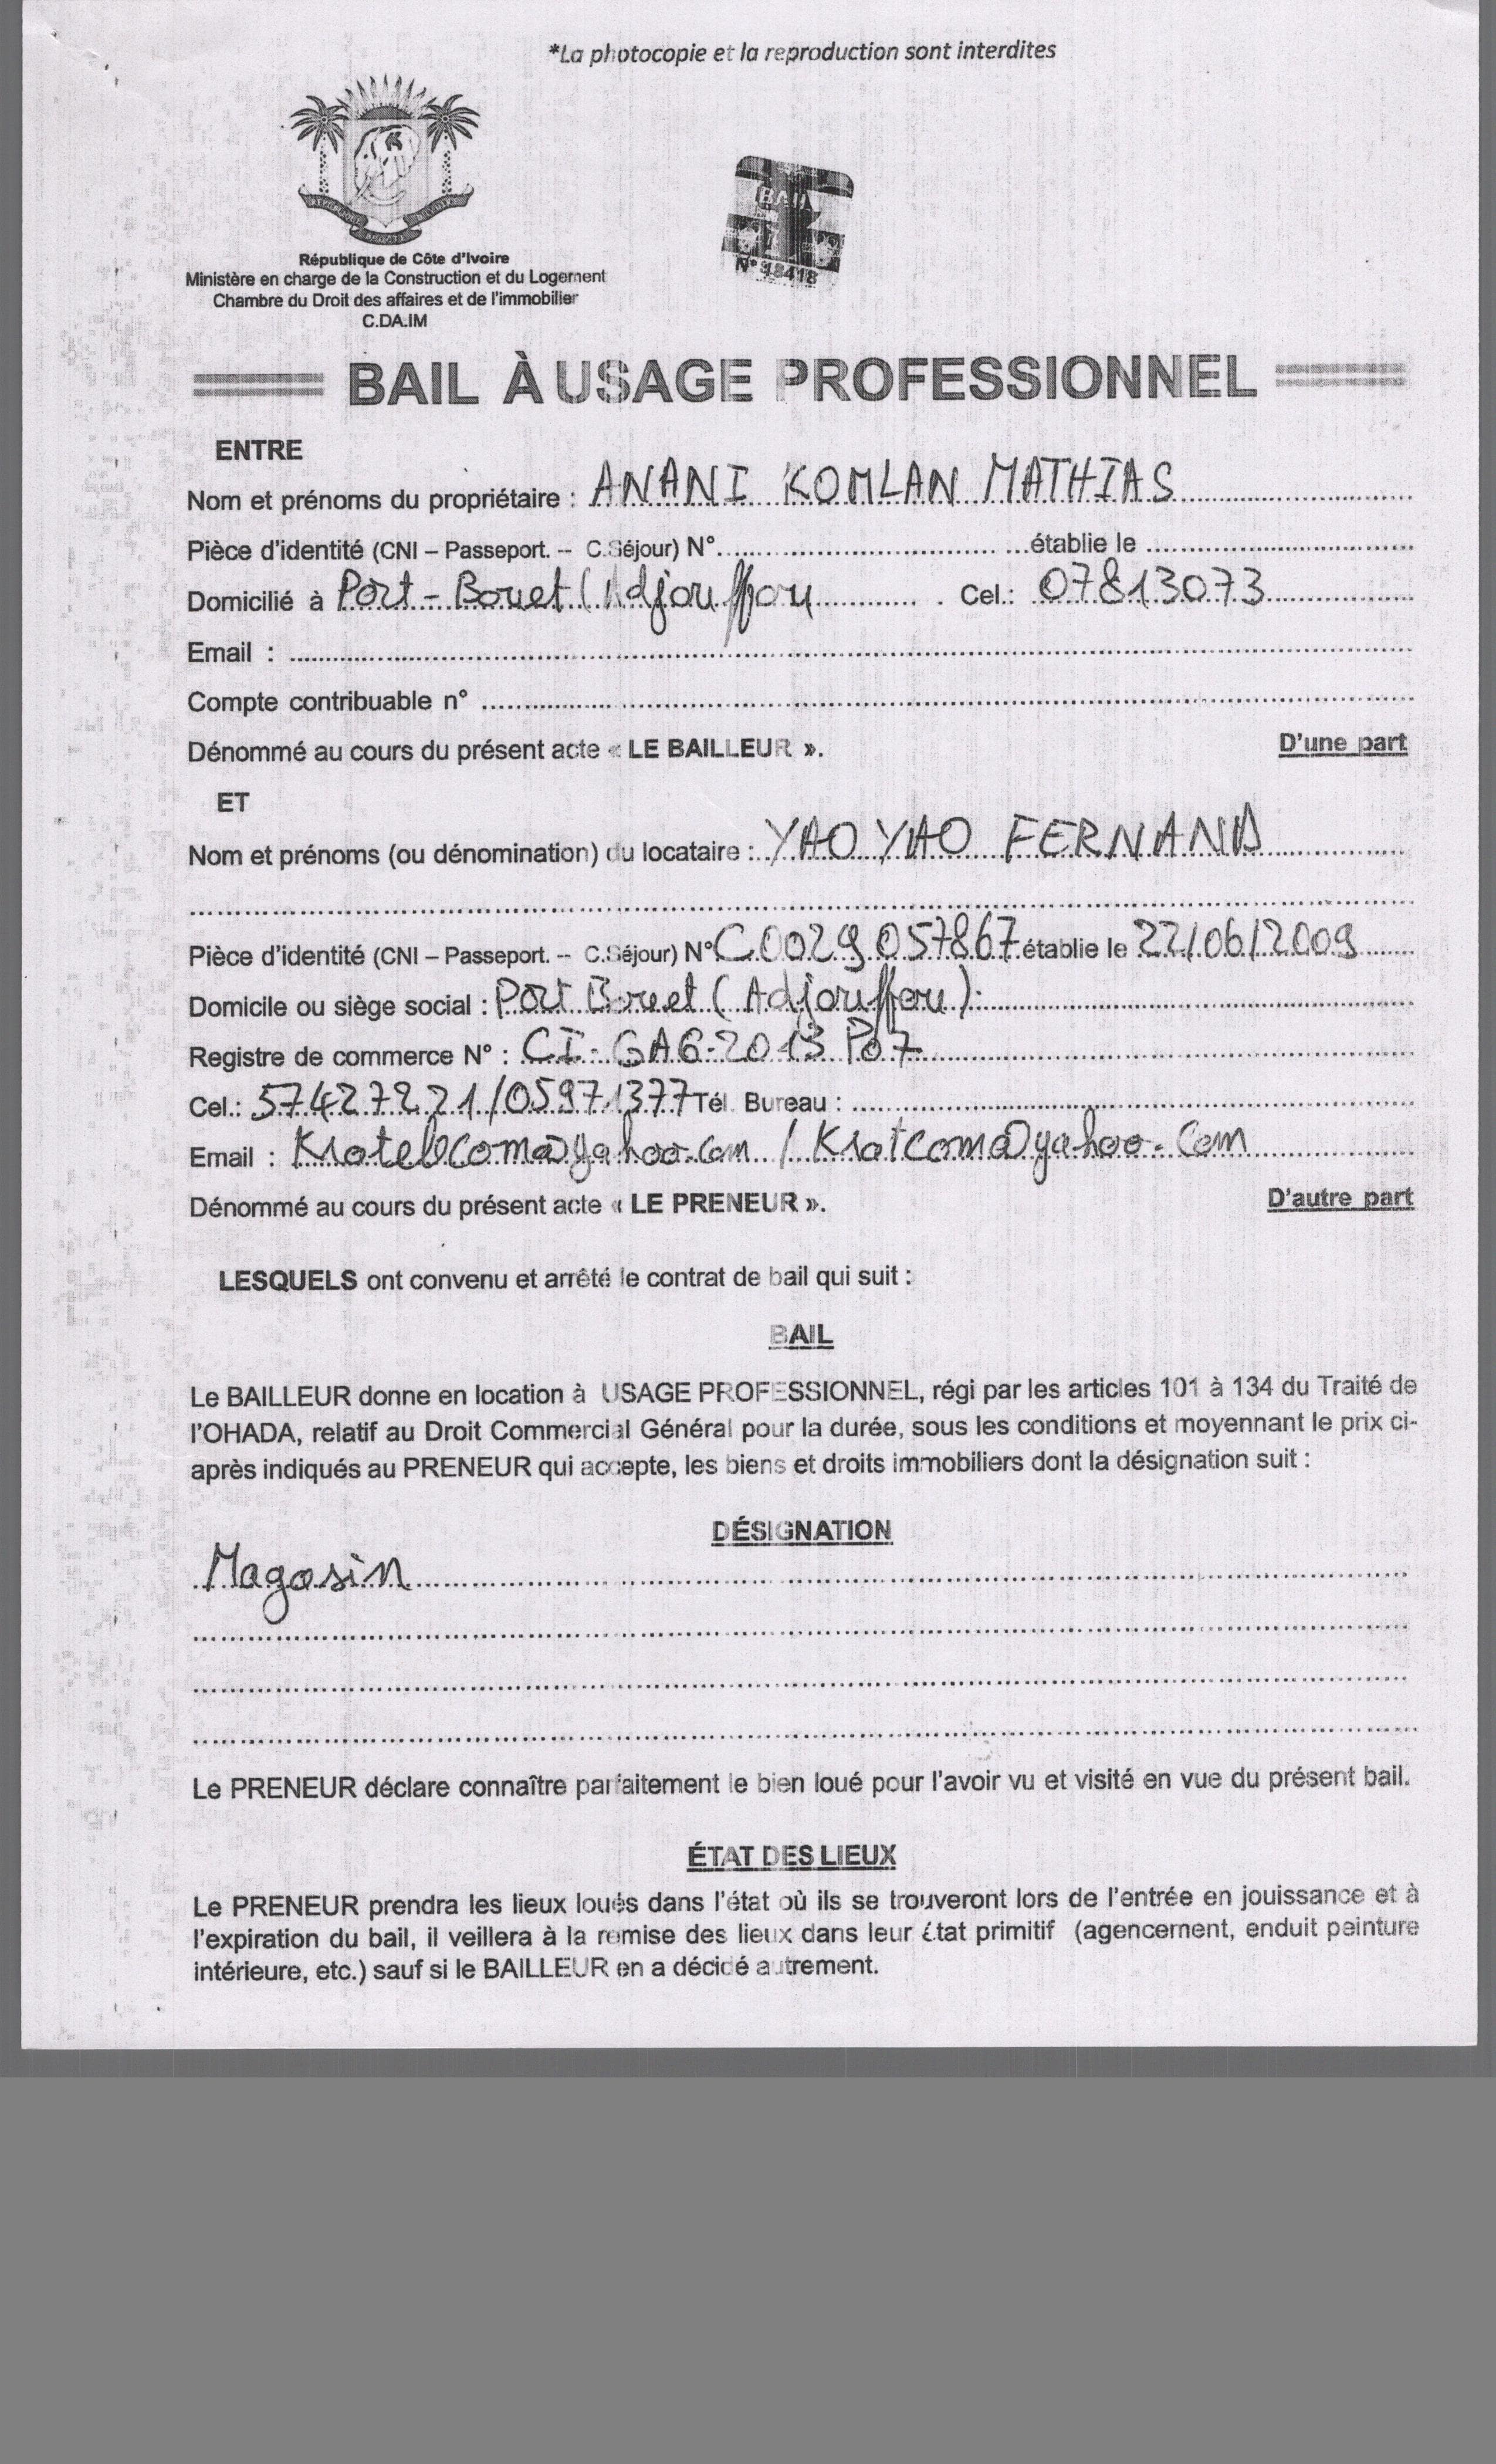 *La photocopie et la reproduction sont interdites
RÉPUBLIQUE DE CÔTE D'IVOIRE
BAIL
N° 48418
République de Côte d'Ivoire
Ministère en charge de la Construction et du Logement
Chambre du Droit des affaires et de l'immobilier
C.DA.IM
BAIL À USAGE PROFESSIONNEL
ENTRE
Nom et prénoms du propriétaire : ANANI KOMLAN MATHIAS
Pièce d'identité (CNI – Passeport. – C.Séjour) N°........ établie le ........
Domicilié à Port-Bouet (Adjouffou Cel.: 07813073
Email : ........
Compte contribuable n° ........
Dénommé au cours du présent acte « LE BAILLEUR ». D'une part
ET
Nom et prénoms (ou dénomination) du locataire : YAO YAO FERNAND
Pièce d'identité (CNI – Passeport. – C.Séjour) N° C0029057867 établie le 22/06/2009
Domicile ou siège social : Port Bouet (Adjouffou)
Registre de commerce N° : CI-GAG-2013 P07
Cel.: 57427221/05971377 Tél. Bureau : ........
Email : Ksatelecoma@yahoo.com / Ksatcoma@yahoo.com
Dénommé au cours du présent acte « LE PRENEUR ». D'autre part
LESQUELS ont convenu et arrêté le contrat de bail qui suit :
BAIL
Le BAILLEUR donne en location à USAGE PROFESSIONNEL, régi par les articles 101 à 134 du Traité de
l'OHADA, relatif au Droit Commercial Général pour la durée, sous les conditions et moyennant le prix ci-
après indiqués au PRENEUR qui accepte, les biens et droits immobiliers dont la désignation suit :
DÉSIGNATION
Magasin
Le PRENEUR déclare connaître parfaitement le bien loué pour l'avoir vu et visité en vue du présent bail.
ÉTAT DES LIEUX
Le PRENEUR prendra les lieux loués dans l'état où ils se trouveront lors de l'entrée en jouissance et à
l'expiration du bail, il veillera à la remise des lieux dans leur état primitif (agencement, enduit peinture
intérieure, etc.) sauf si le BAILLEUR en a décidé autrement.